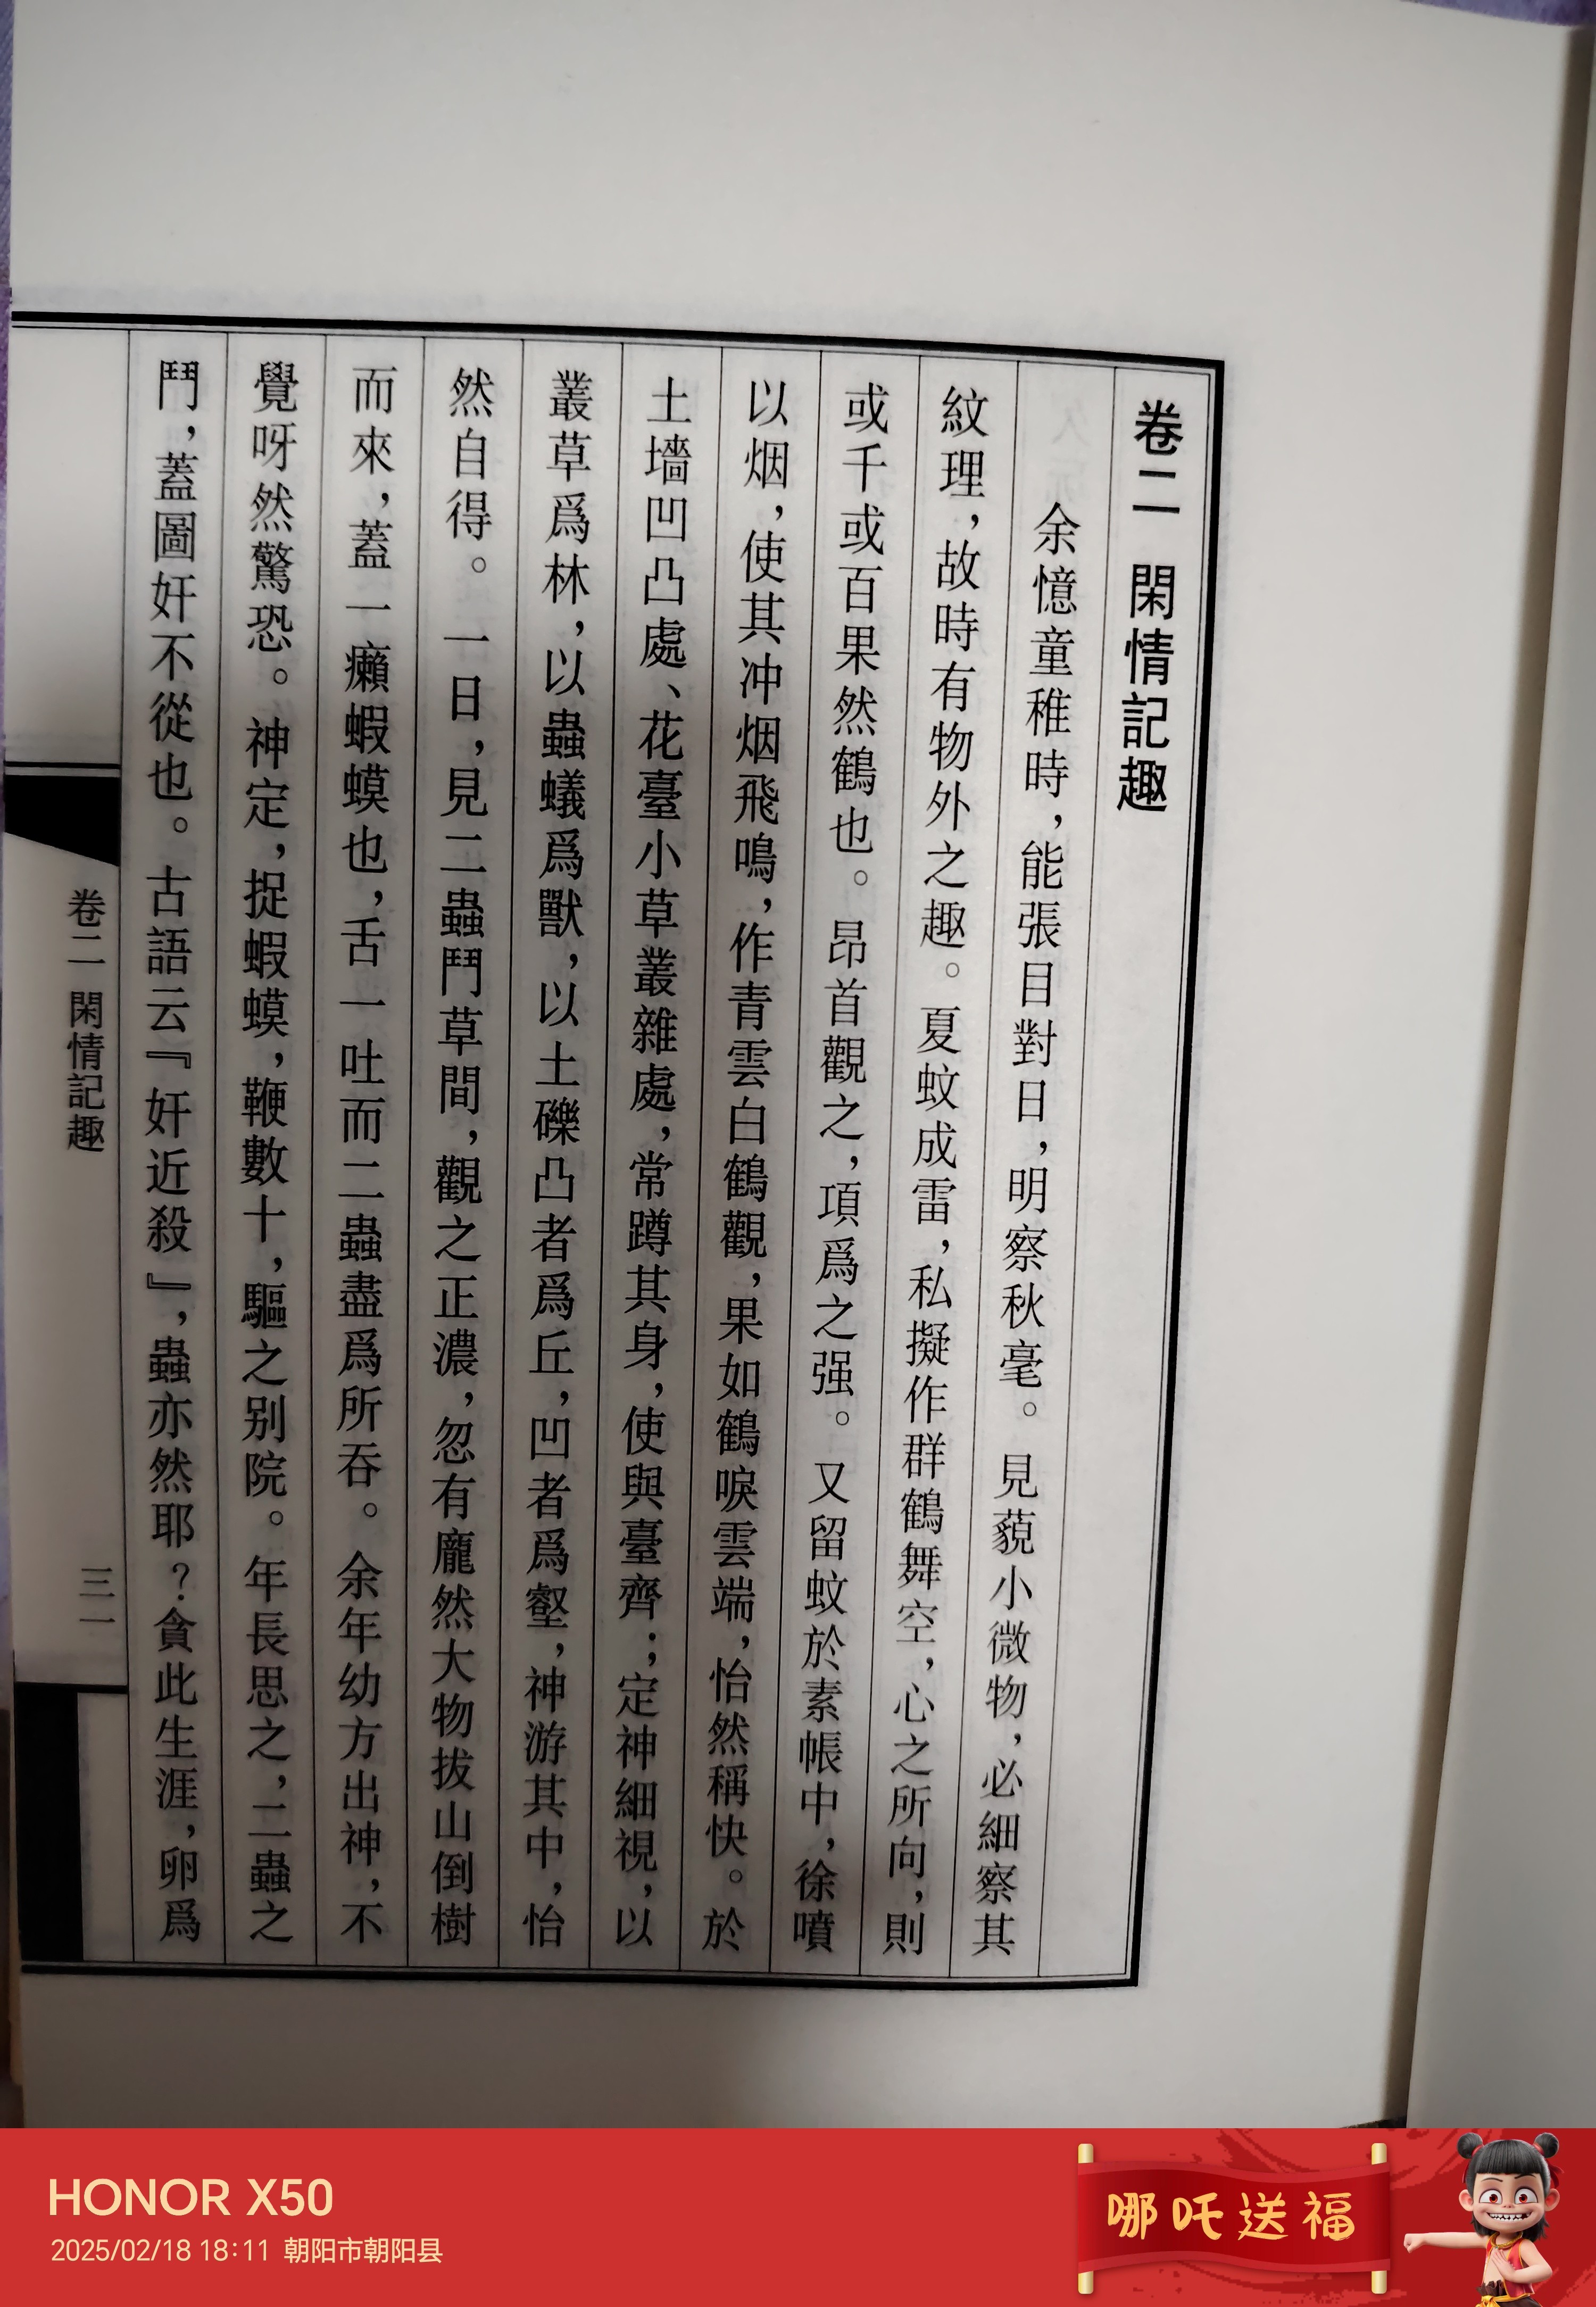 卷二　閑情記趣
余憶童稚時，能張目對日，明察秋毫。見藐小微物，必細察其
紋理，故時有物外之趣。夏蚊成雷，私擬作群鶴舞空，心之所向，則
或千或百果然鶴也。昂首觀之，項爲之强。又留蚊於素帳中，徐噴
以烟，使其冲烟飛鳴，作青雲白鶴觀，果如鶴唳雲端，怡然稱快。於
土墻凹凸處、花臺小草叢雜處，常蹲其身，使與臺齊；定神細視，以
叢草爲林，以蟲蟻爲獸，以土礫凸者爲丘，凹者爲壑，神游其中，怡
然自得。一日，見二蟲鬥草間，觀之正濃，忽有龐然大物拔山倒樹
而來，蓋一癩蝦蟆也，舌一吐而二蟲盡爲所吞。余年幼方出神，不
覺呀然驚恐。神定，捉蝦蟆，鞭數十，驅之别院。年長思之，二蟲之
鬥，蓋圖奸不從也。古語云『奸近殺』，蟲亦然耶？貪此生涯，卵爲
卷二　閑情記趣
三一
HONOR X50
2025/02/18 18:11 朝阳市朝阳县
哪吒送福